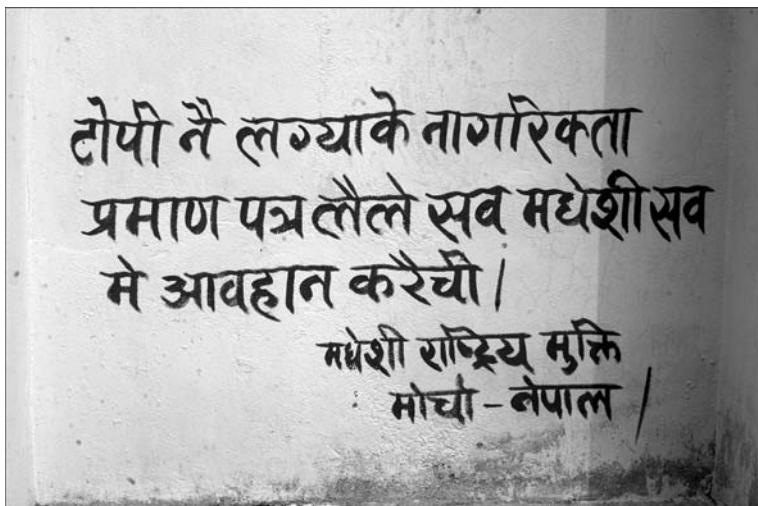 टोपी नै लग्याके नागरिकता
प्रमाण पत्र लैले सव मधेशी सव
मे आवहान करैची।
मधेशी राष्ट्रिय मुक्ति
मोर्चा - नेपाल।